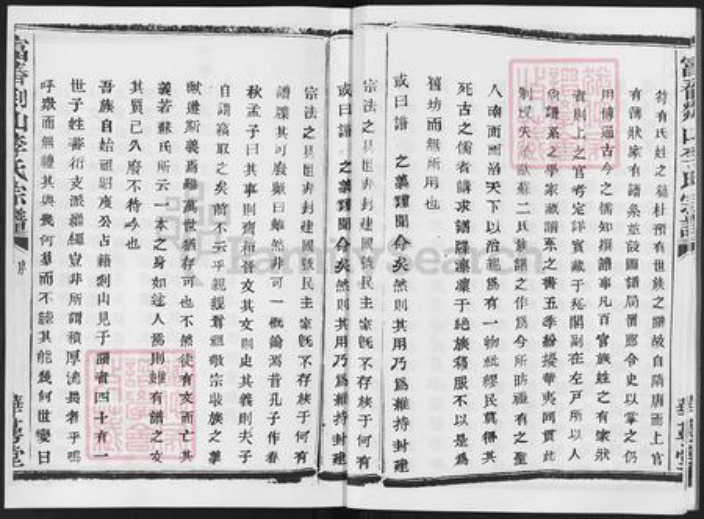 富春剡山李氏宗譜
華萼堂
荀有氏姓之篇杜預有世族之譜故自隋唐而上官
有簿狀家有譜系並設圖譜局置郎令史以掌之仍
用博通古今之儒知撰譜事凡百官族姓之有家狀
者則上之官考定詳實藏于秘閣副在左戶所以人
尚譜系之學家藏譜系之書五季紛擾華夷同貫此
制埂失 歐蘇二氏族譜之作爲今所昉雖有之聖
人南面而治天下以治親爲有一物紕繆民莫得其
死古之儒者講求譜牒凛凛于絶族移服不以是爲
舊坊而無所用也
或曰譜 之義謹聞命矣然則其用乃爲維持封建
宗法之具匪井封建國號民主宗旣不存族于何有
或曰譜 之義謹聞命矣然則其用乃爲維持封建
宗法之具匪井封建國號民主宗旣不存族于何有
譜牒其可廢歟曰雖然非可一槪論焉昔孔子作春
秋孟子曰其事則齊桓晉文其文則史其義則夫子
自謂竊取之矣前不云乎親親尊祖敬宗收族之義
猷遵斯義焉雖萬世猶存可也不然徒有文而亡其
義若蘇氏所云一本之身如途人焉則雖有譜之文
其質已久廢不待今也
吾族自始祖昭度公占籍剡山見于譜者四十有一
世子姓蕃衍支派繼繩豈非所謂積厚流長者乎嗚
呼衆而無禮其與幾何羣而不睦其能幾何世變日
富春剡山李氏宗譜
序
華萼堂
FamilySearch